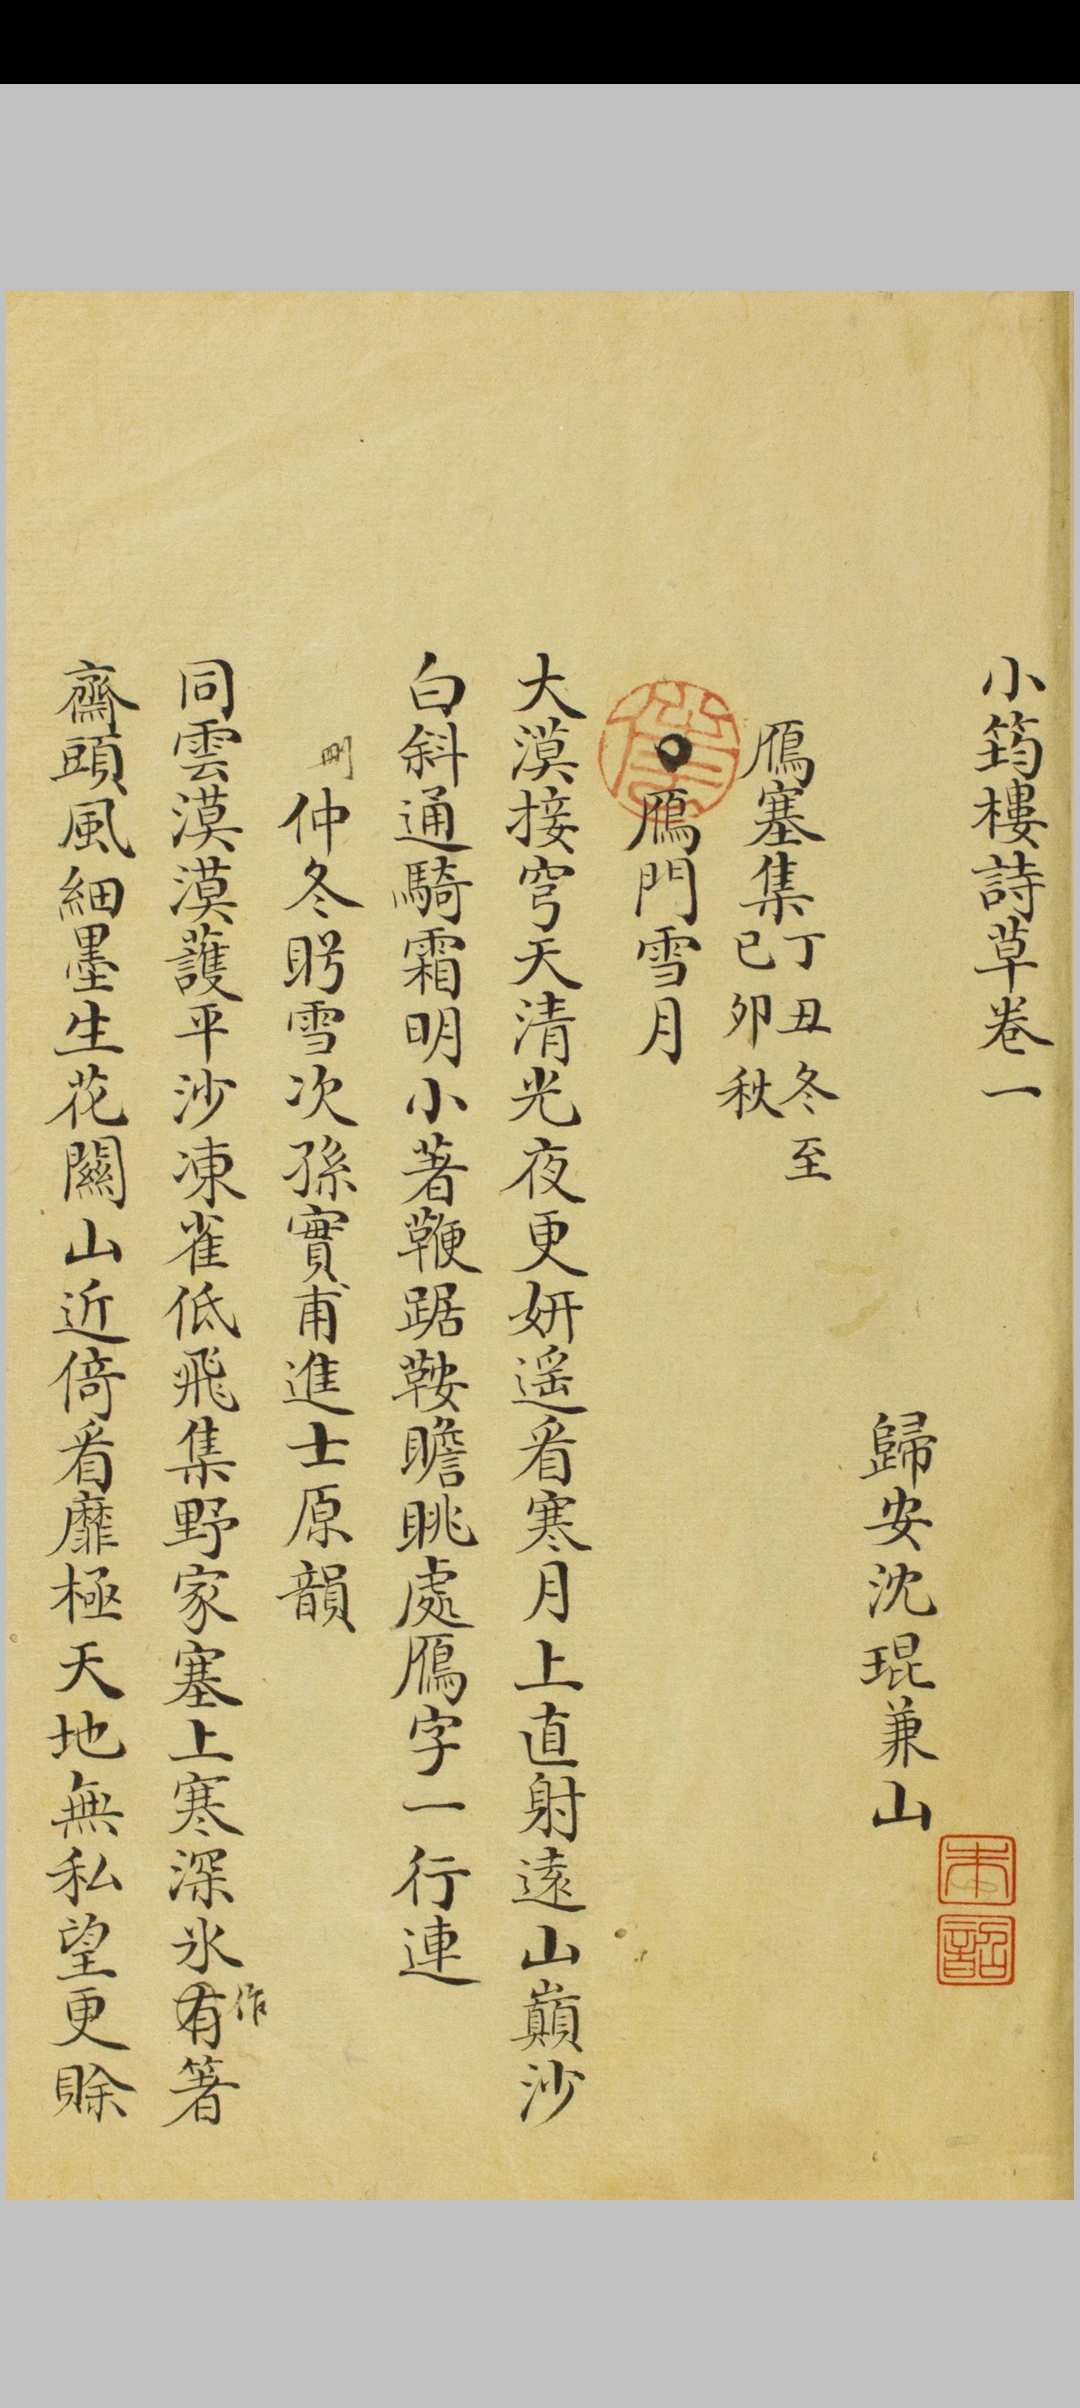 小筠樓詩草卷一
歸安沈琨兼山
鴈塞集丁丑冬至
己卯秋
鴈門雪月
大漠接穹天清光夜更妍遥看寒月上直射遠山巔沙
白斜通騎霜明小著鞭踞鞍瞻眺處鴈字一行連
刪
仲冬盻雪次孫實甫進士原韻
同雲漠漠護平沙凍雀低飛集野家塞上寒深氷有箸
作
齋頭風細墨生花關山近倚看靡極天地無私望更賒